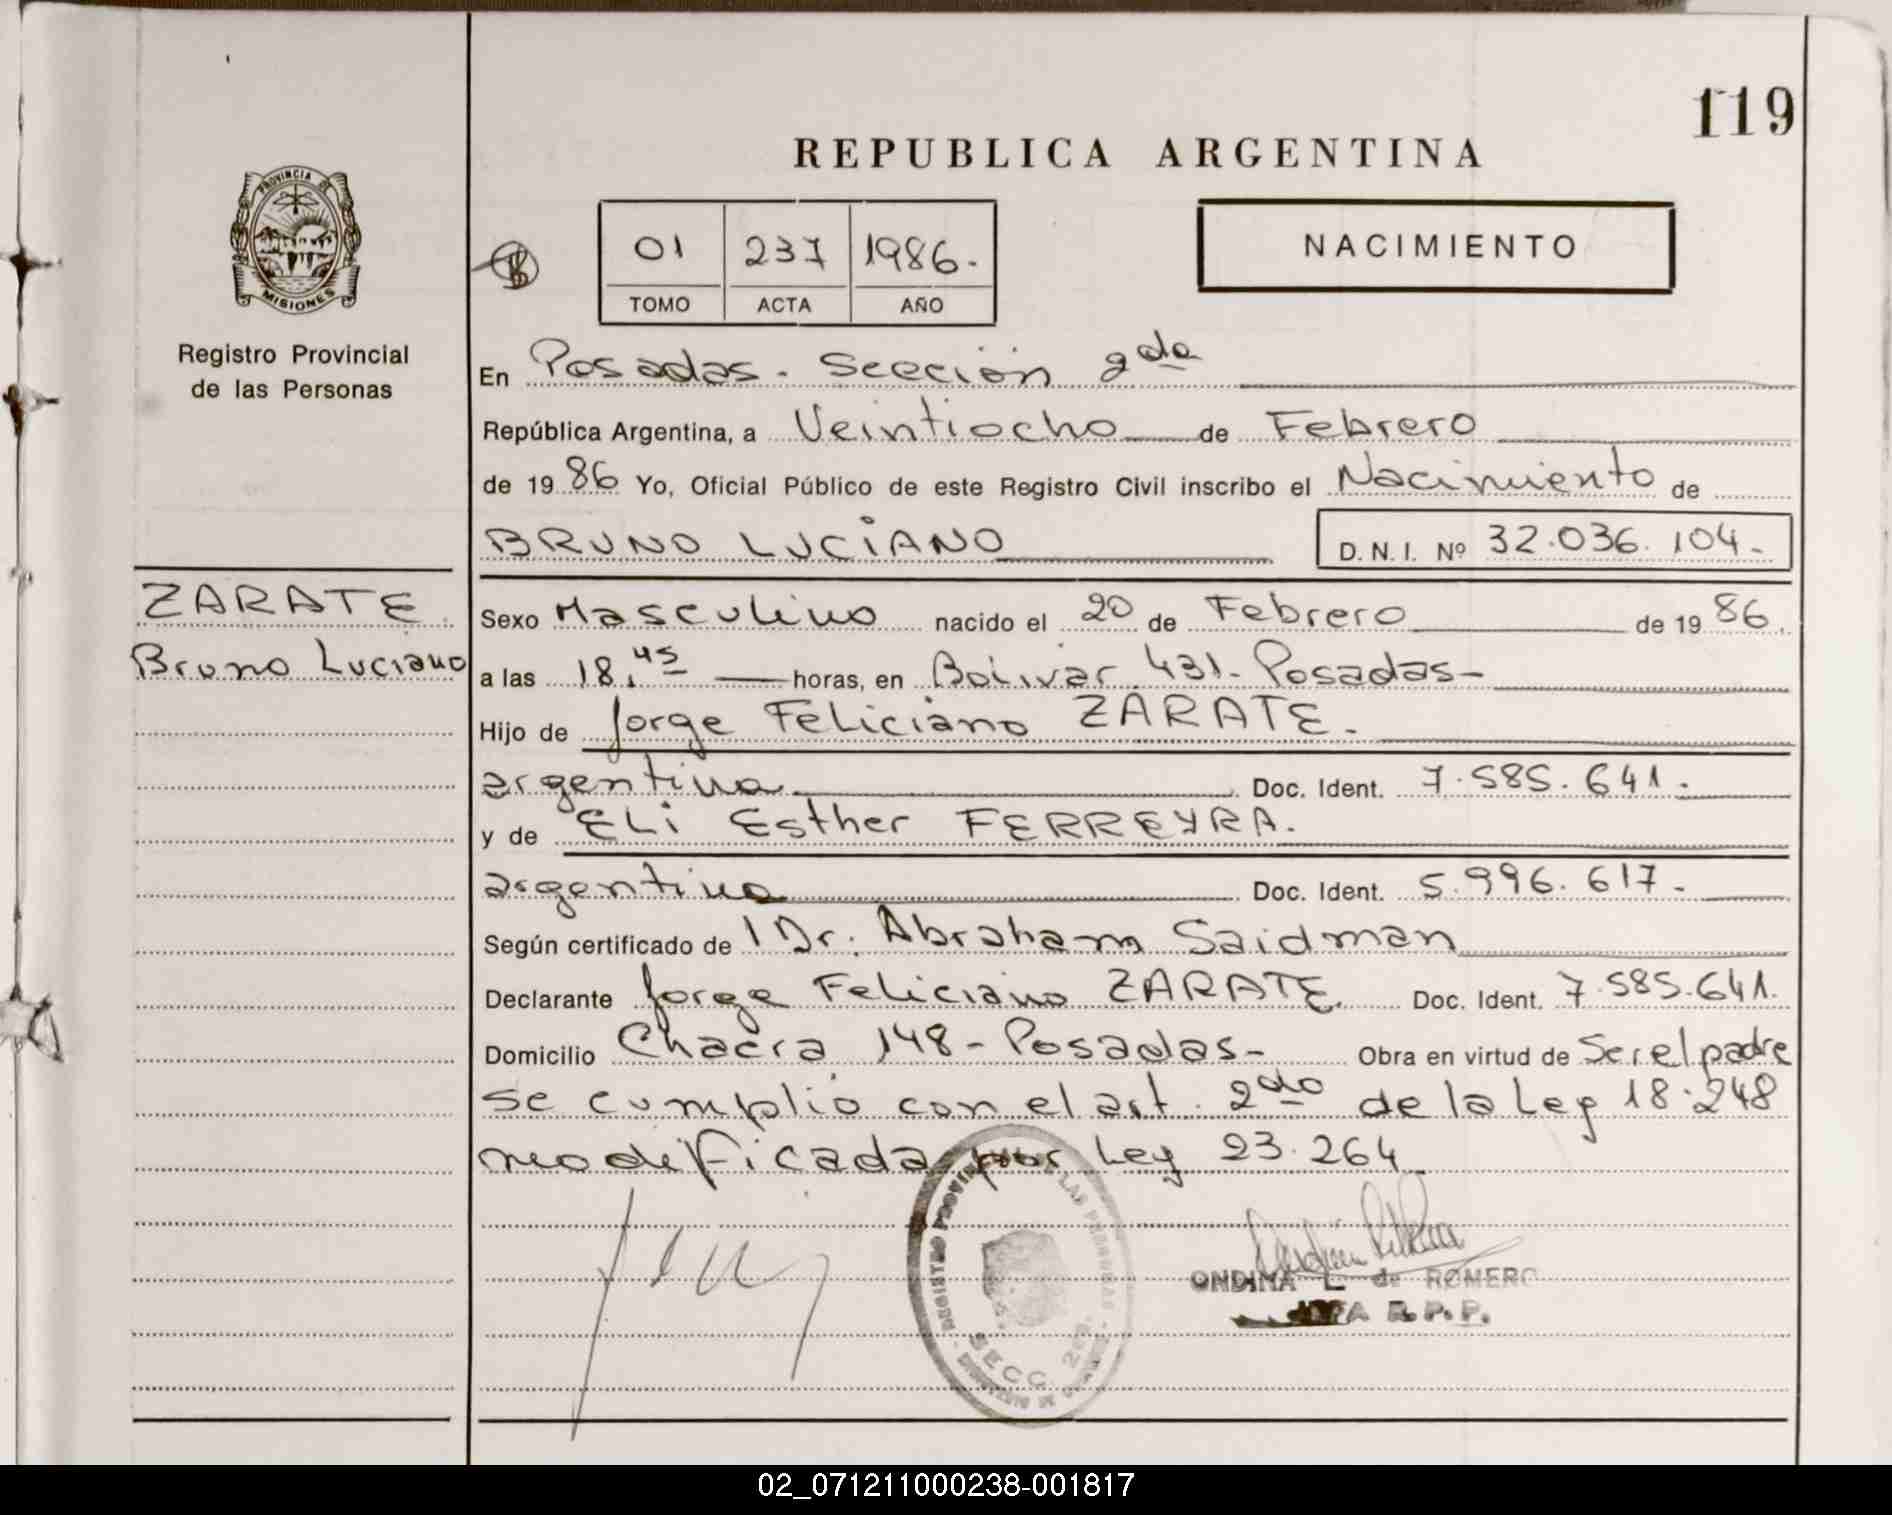 119
REPUBLICA ARGENTINA
PROVINCIA DE
MISIONES
Registro Provincial
de las Personas
01 237 1986.-
TOMO ACTA AÑO
NACIMIENTO
En Posadas. Sección 2da
República Argentina, a Veintiocho de Febrero
de 1986 Yo, Oficial Público de este Registro Civil inscribo el Nacimiento de
BRUNO LUCIANO D. N. I. Nº 32.036.104.-
ZARATE
Bruno Luciano
Sexo Masculino nacido el 20 de Febrero de 1986.
a las 18,45 horas, en Bolivar 431- Posadas-
Hijo de Jorge Feliciano ZARATE.
argentina Doc. Ident. 7.585.641.-
y de ELi Esther FERREYRA.
argentina Doc. Ident. 5.996.617.-
Según certificado de Dr. Abraham Saidman
Declarante Jorge Feliciano ZARATE. Doc. Ident. 7.585.641.
Domicilio Chacra 148- Posadas- Obra en virtud de Ser el padre
se cumplio con el art. 2do de la Ley 18.248
modificada por Ley 23.264
REGISTRO PROVINCIAL DE LAS PERSONAS
SECC. 2da.
ONDINA L. de ROMERO
JEFA R.P.P.
02_071211000238-001817